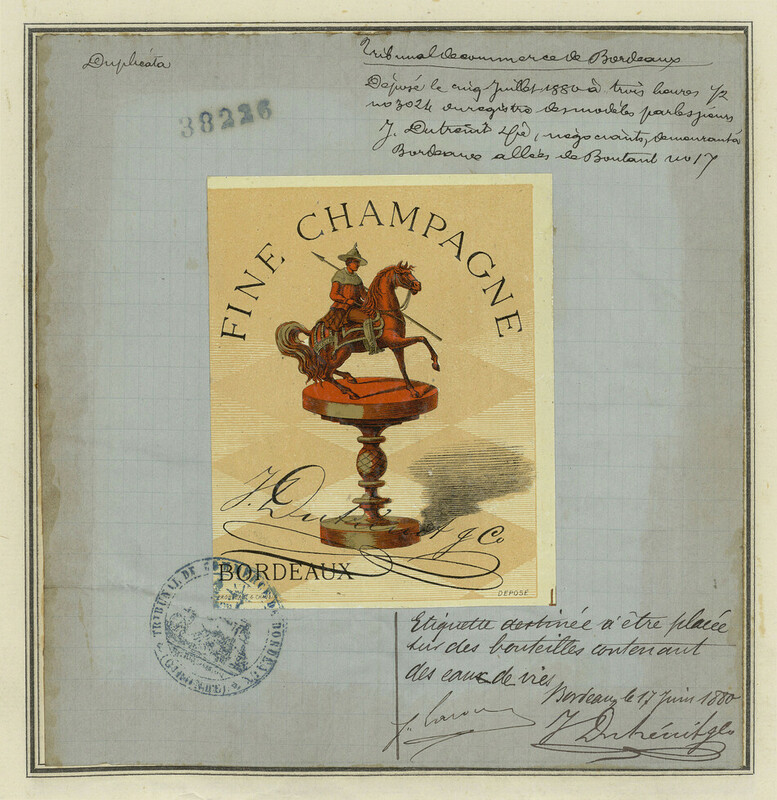 Duplicata
Tribunal de commerce de Bordeaux
Déposé le cinq Juillet 1880 à trois heures 1/2
no 3024 du registre des modèles par les sieurs
J. Dutrénit & Cie, négociants, demeurant à
Bordeaux allées de Boutaut no 17
38226
FINE CHAMPAGNE
J. Dutrénit & Co
BORDEAUX
DÉPOSÉ
TRIBUNAL DE COMMERCE DE BORDEAUX
(GIRONDE)
Etiquette destinée à être placée
sur des bouteilles contenant
des eaux de vies
Bordeaux, le 17 Juin 1880
J Dutrénit & Co